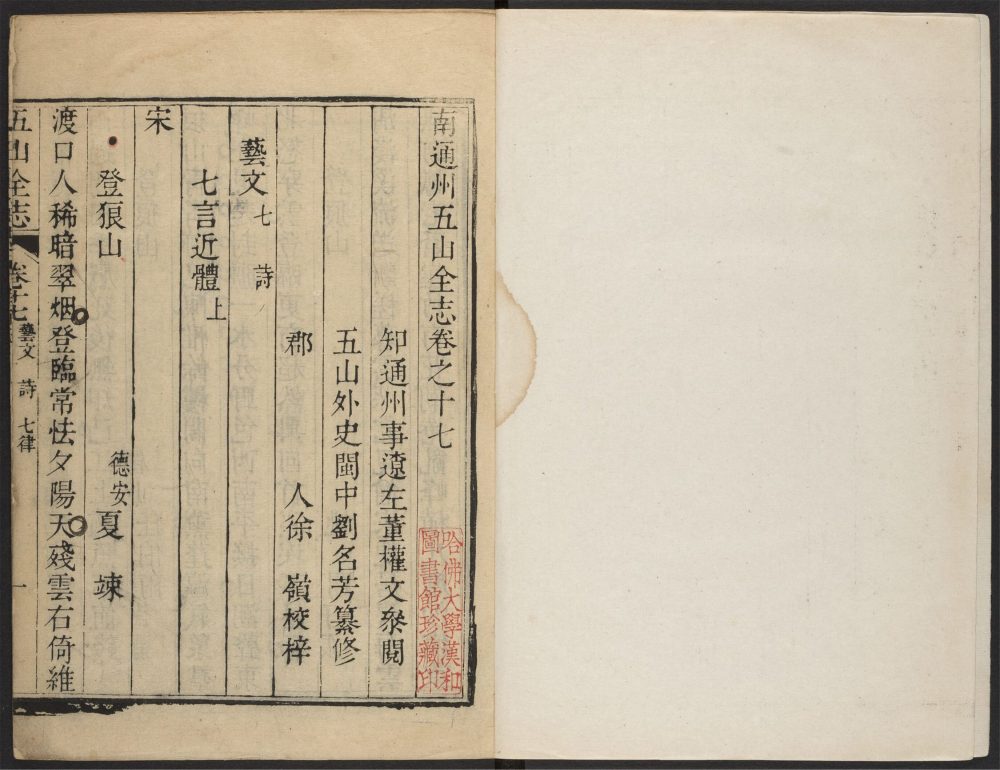 南通州五山全志卷之十七
知通州事遼左董權文眾閱
五山外史閩中劉名芳纂修
郡人徐嶺校梓
藝文七 詩
七言近體上
宋
登狼山 德安夏竦
渡口人稀暗翠烟登臨常怯夕陽天殘雲右倚維
五山全志 卷十七 藝文 詩 七律 一
哈佛大學漢和
圖書館珍藏印